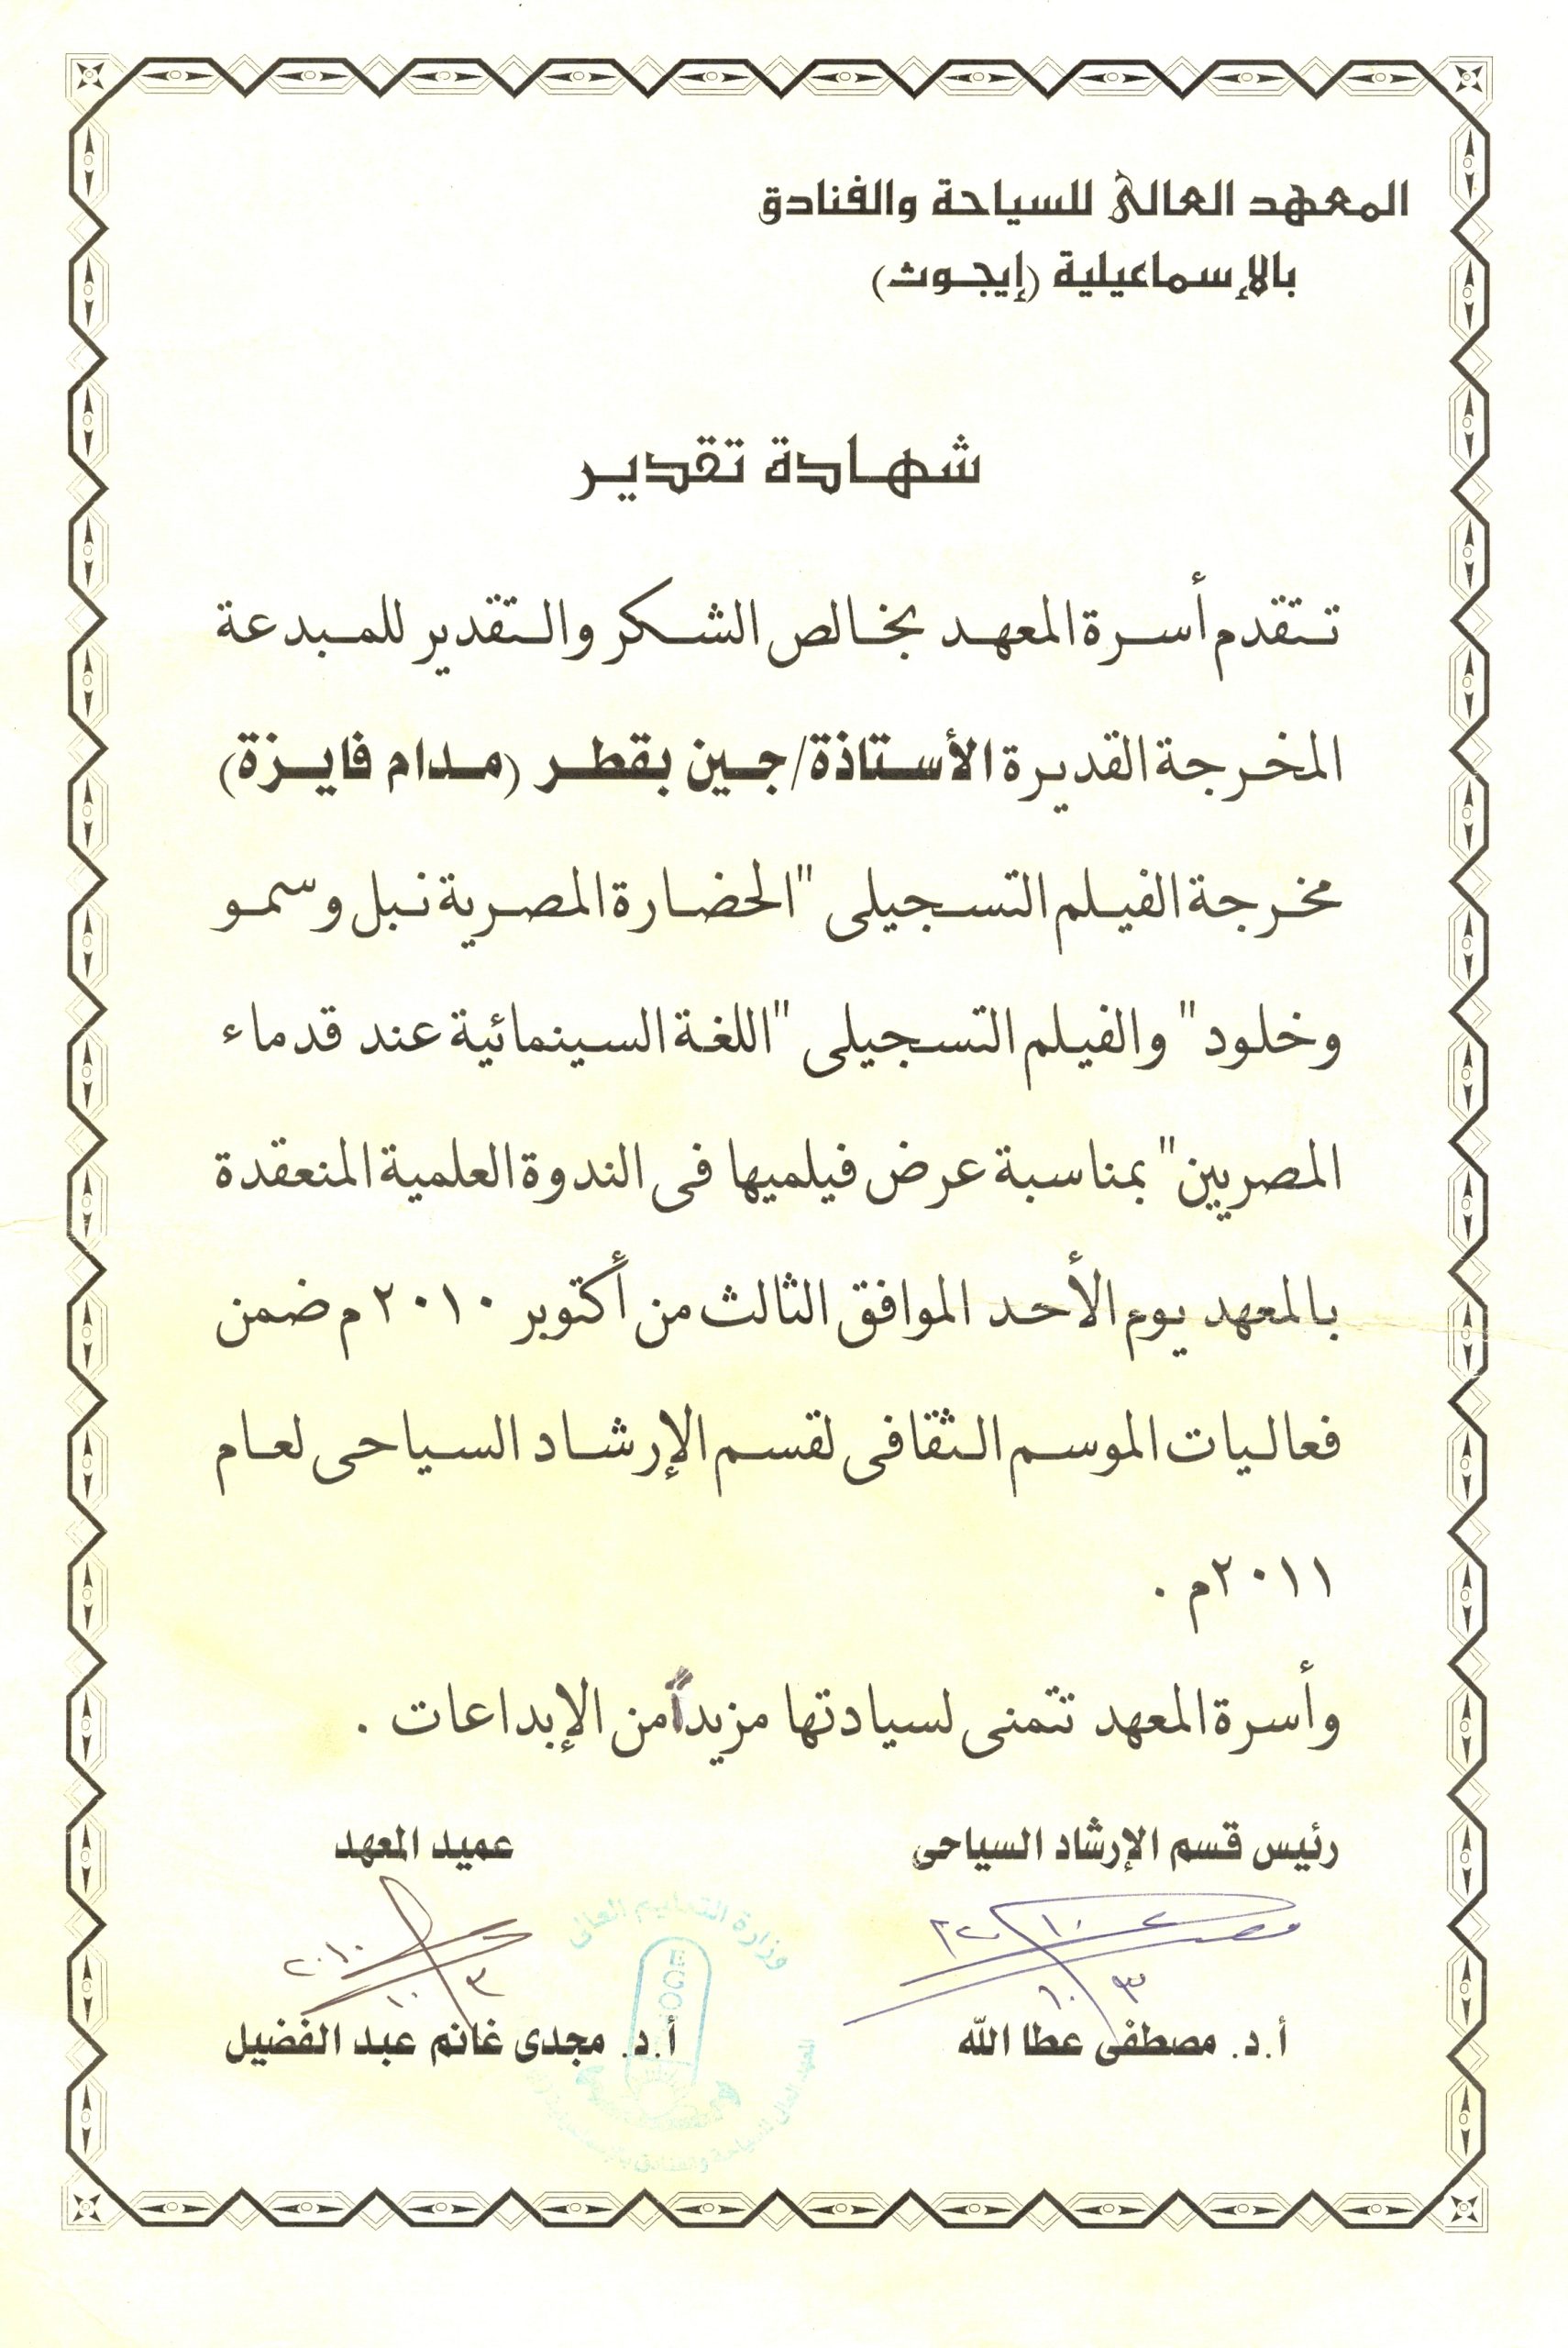 المعهد العالى للسياحة والفنادق
بالإسماعيلية (إيجوث)
شهادة تقدير
تتقدم أسرة المعهد بخالص الشكر والتقدير للمبدعة
المخرجة القديرة الأستاذة/جين بقطر (مدام فايزة)
مخرجة الفيلم التسجيلى "الحضارة المصرية نبل وسمو
وخلود" والفيلم التسجيلى "اللغة السينمائية عند قدماء
المصريين" بمناسبة عرض فيلميها فى الندوة العلمية المنعقدة
بالمعهد يوم الأحد الموافق الثالث من أكتوبر ٢٠١٠ م ضمن
فعاليات الموسم الثقافى لقسم الإرشاد السياحى لعام
٢٠١١م .
وأسرة المعهد تتمنى لسيادتها مزيداً من الإبداعات .
رئيس قسم الإرشاد السياحى
عميد المعهد
وزارة التعليم العالى
EGOTH
أ.د. مصطفى عطا الله
أ.د. مجدى غانم عبد الفضيل